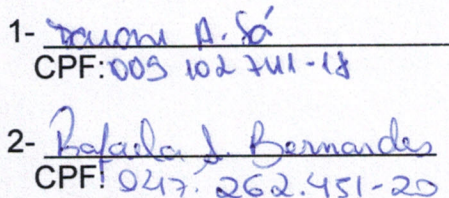 1- A. Sá
CPF: 009 102 741-18
2- Rafaela J. Bernardes
CPF: 047. 262.451-20